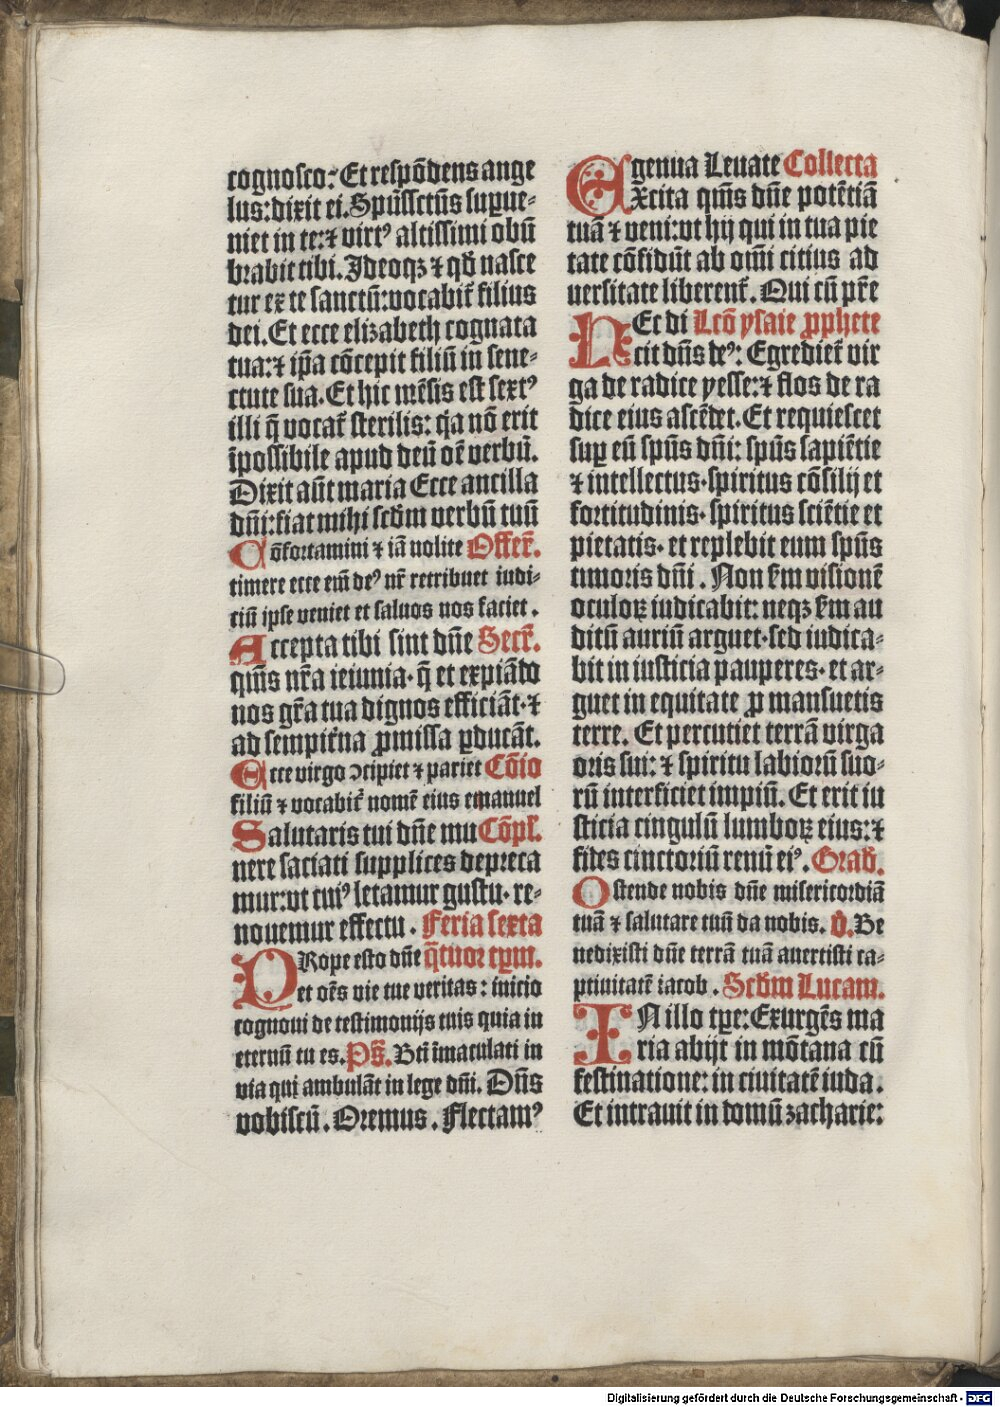 cognosco: Et respōdens ange
lus: dixit ei. Spūssctūs supue-
niet in te: ⁊ virtꝰ altissimi obū
brabit tibi. Ideoqꝫ ⁊ qđ nasce
tur ex te sanctū: vocabit̄ filius
dei. Et ecce elizabeth cognata
tua: ⁊ ip̄a cōcepit filiū in sene-
ctute sua. Et hic mēsis est sextꝰ
illi q̄ vocat̄ sterilis: q̇a nō erit
īpossibile apud deū oē verbū.
Dixit aūt maria Ecce ancilla
dn̄i: fiat mihi scđm verbū tuū
Cōfortamini ⁊ iā nolite Offer̄.
timere ecce em̄ deꝰ nr̄ retribuet iudi-
ciū ipse veniet et saluos nos faciet.
Accepta tibi sint dn̄e Secr̄.
qm̄s nr̄a ieiunia. q̄ et expiādo
nos gr̄a tua dignos efficiāt. ⁊
ad sempit̄na ꝓmissa ꝑducāt.
Ecce virgo ↄcipiet ⁊ pariet Cōio
filiū ⁊ vocabit̄ nomē eius emanuel
Salutaris tui dn̄e mu Cōpl̄.
nere saciati supplices depreca
mur: vt cuiꝰ letamur gustu. re-
nouemur effectu. Feria sexta
PRope esto dn̄e q̄tuor tꝑm.
et oēs vie tue veritas: inicio
cognoui de testimonijs tuis quia in
eternū tu es. Ps̄. Bt̄i īmaculati in
via qui ambulāt in lege dn̄i. Dn̄s
vobiscū. Oremus. Flectamꝰ
genua Leuate Collecta
Excita qm̄s dn̄e potētiā
tuā ⁊ veni: vt hij qui in tua pie
tate cōfidūt ab om̄i citius ad
uersitate liberent̄. Qui cū pr̄e
Et di Lcō ysaie ꝓphete
Ncit dn̄s deꝰ: Egrediet̄ vir
ga de radice yesse: ⁊ flos de ra
dice eius ascēdet. Et requiescet
sup eū spūs dn̄i: spūs sapiētie
⁊ intellectus. spiritus cōsilij et
fortitudinis. spiritus sciētie et
pietatis. et replebit eum spūs
timoris dn̄i. Non s̄m visionē
oculoꝝ iudicabit: neqꝫ s̄m au
ditū auriū arguet. sed iudica-
bit in iusticia pauperes. et ar-
guet in equitate ꝓ mansuetis
terre. Et percutiet terrā virga
oris sui: ⁊ spiritu labiorū suo-
rū interficiet impiū. Et erit iu
sticia cingulū lumboꝝ eius: ⁊
fides cinctoriū renū eiꝰ. Građ.
Ostende nobis dn̄e misericordiā
tuā ⁊ salutare tuū da nobis. v̄. Be
nedixisti dn̄e terrā tuā auertisti ca-
ptiuitatē iacob. Scđm Lucam.
IN illo tꝑe: Exurgēs ma
ria abijt in mōtana cū
festinatione: in ciuitatē iuda.
Et intrauit in domū zacharie:
Digitalisierung gefördert durch die Deutsche Forschungsgemeinschaft - DFG